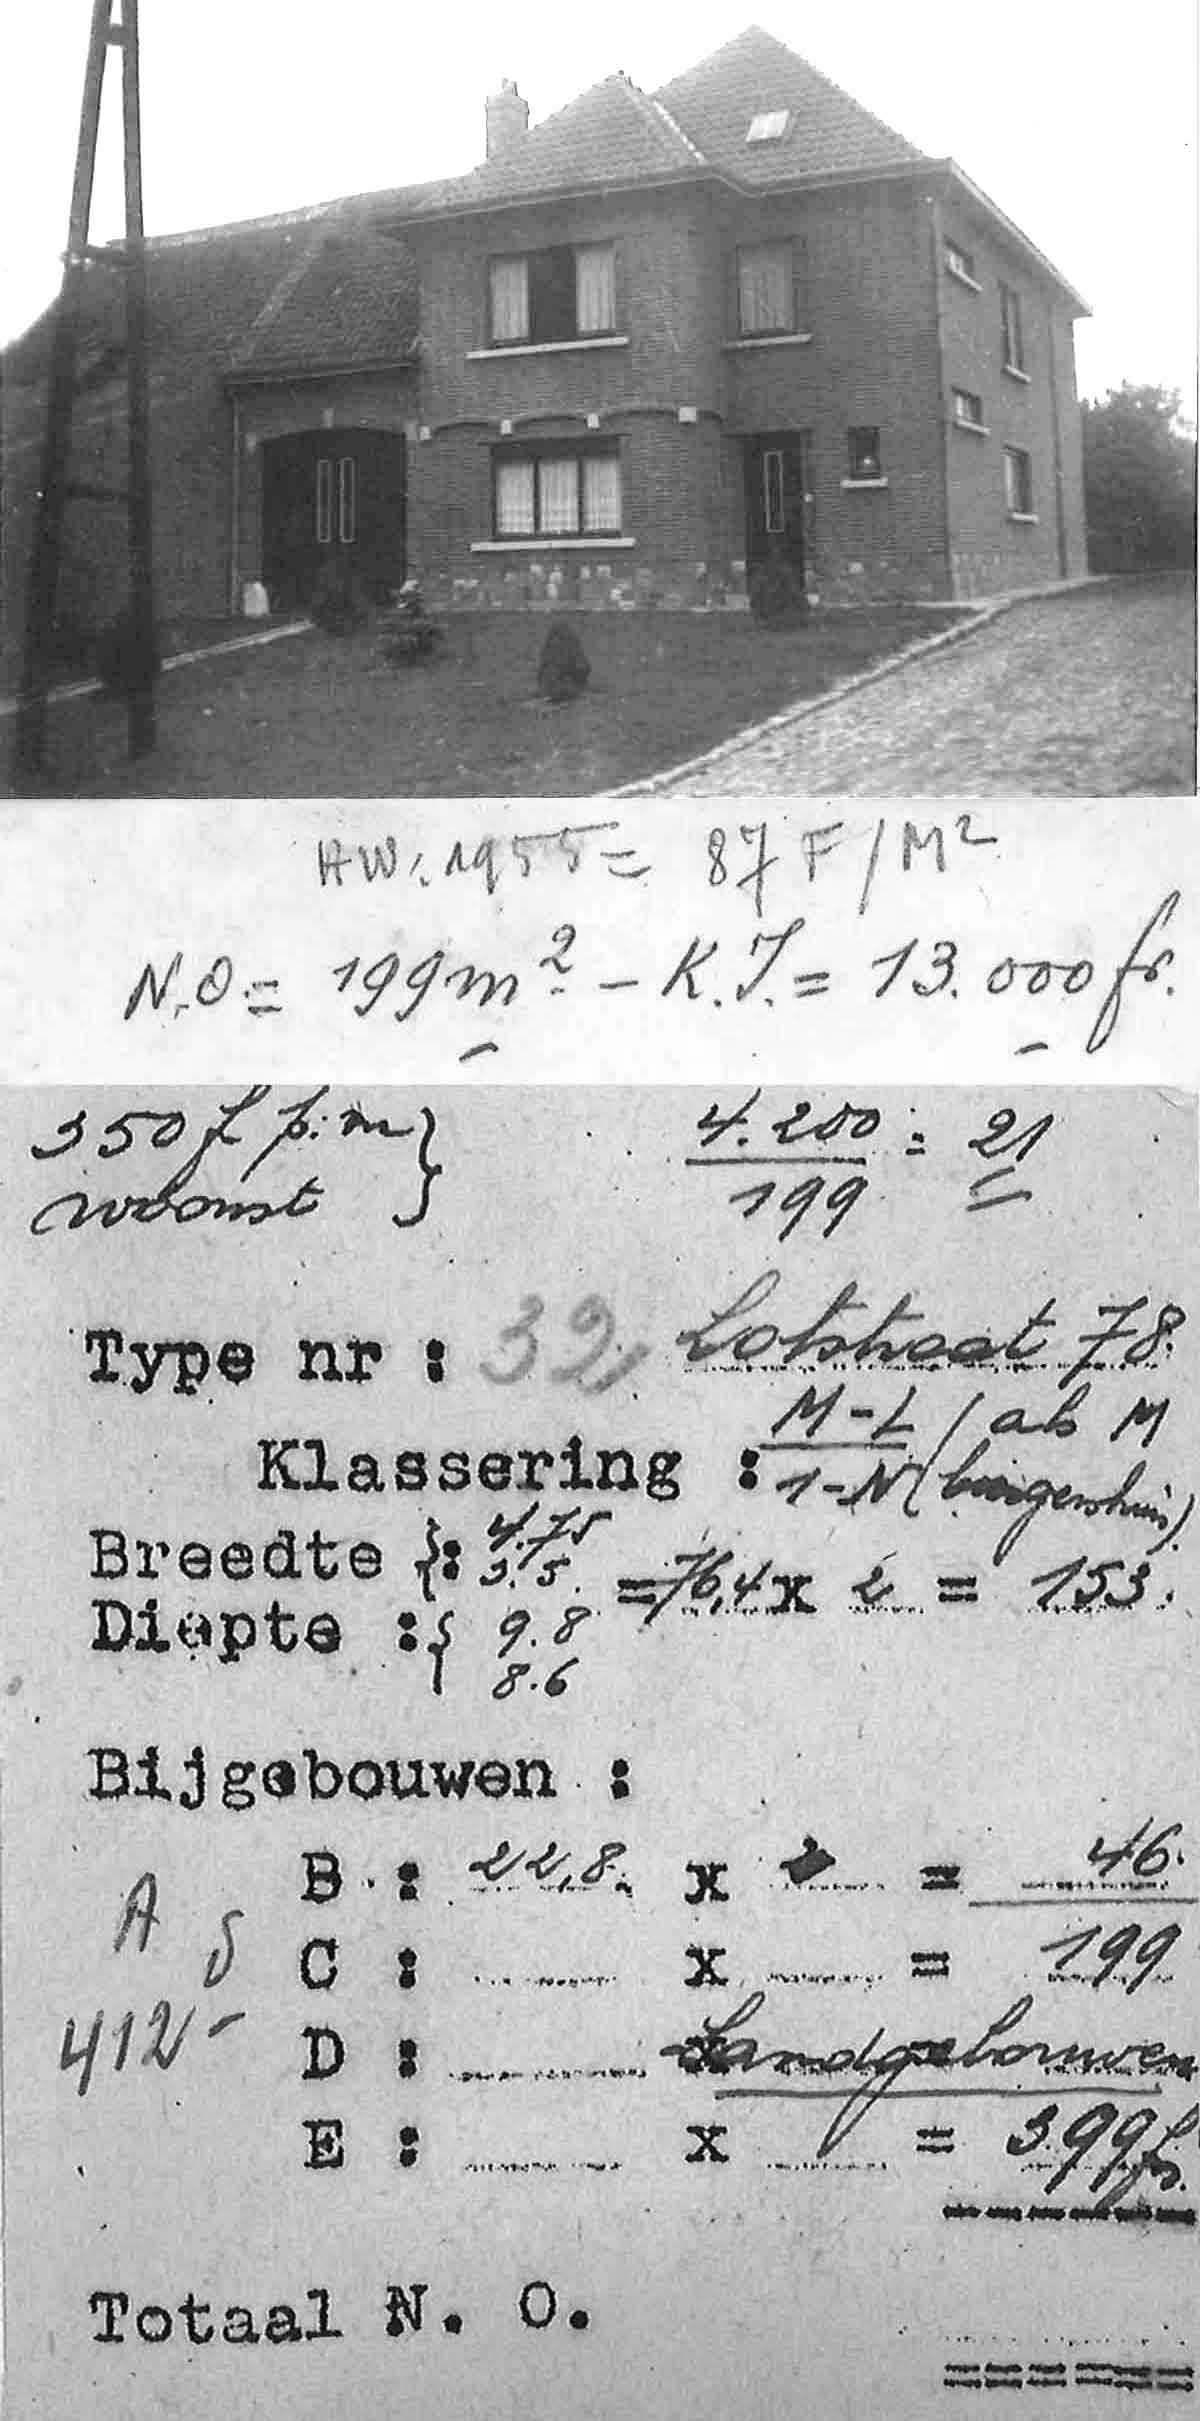 HW: 1955 = 87 F/M²
N.O = 199 m² - K.I. = 13.000 fr.
350 f p.m }
woonst
4.200 = 21
199
Type nr : 32, Lotstraat 78.
M-L / als M
Klassering : 1-N (burgershuis).
Breedte }: 4.75
3.5. = 76,4 x 2 = 153.
Diepte :{ 9.8
8.6
Bijgebouwen :
B : 22,8. x 2 = 46.
A S C : x = 199
412 - D : Landgebouwen
E : x = 399 fr.
Totaal N. O.